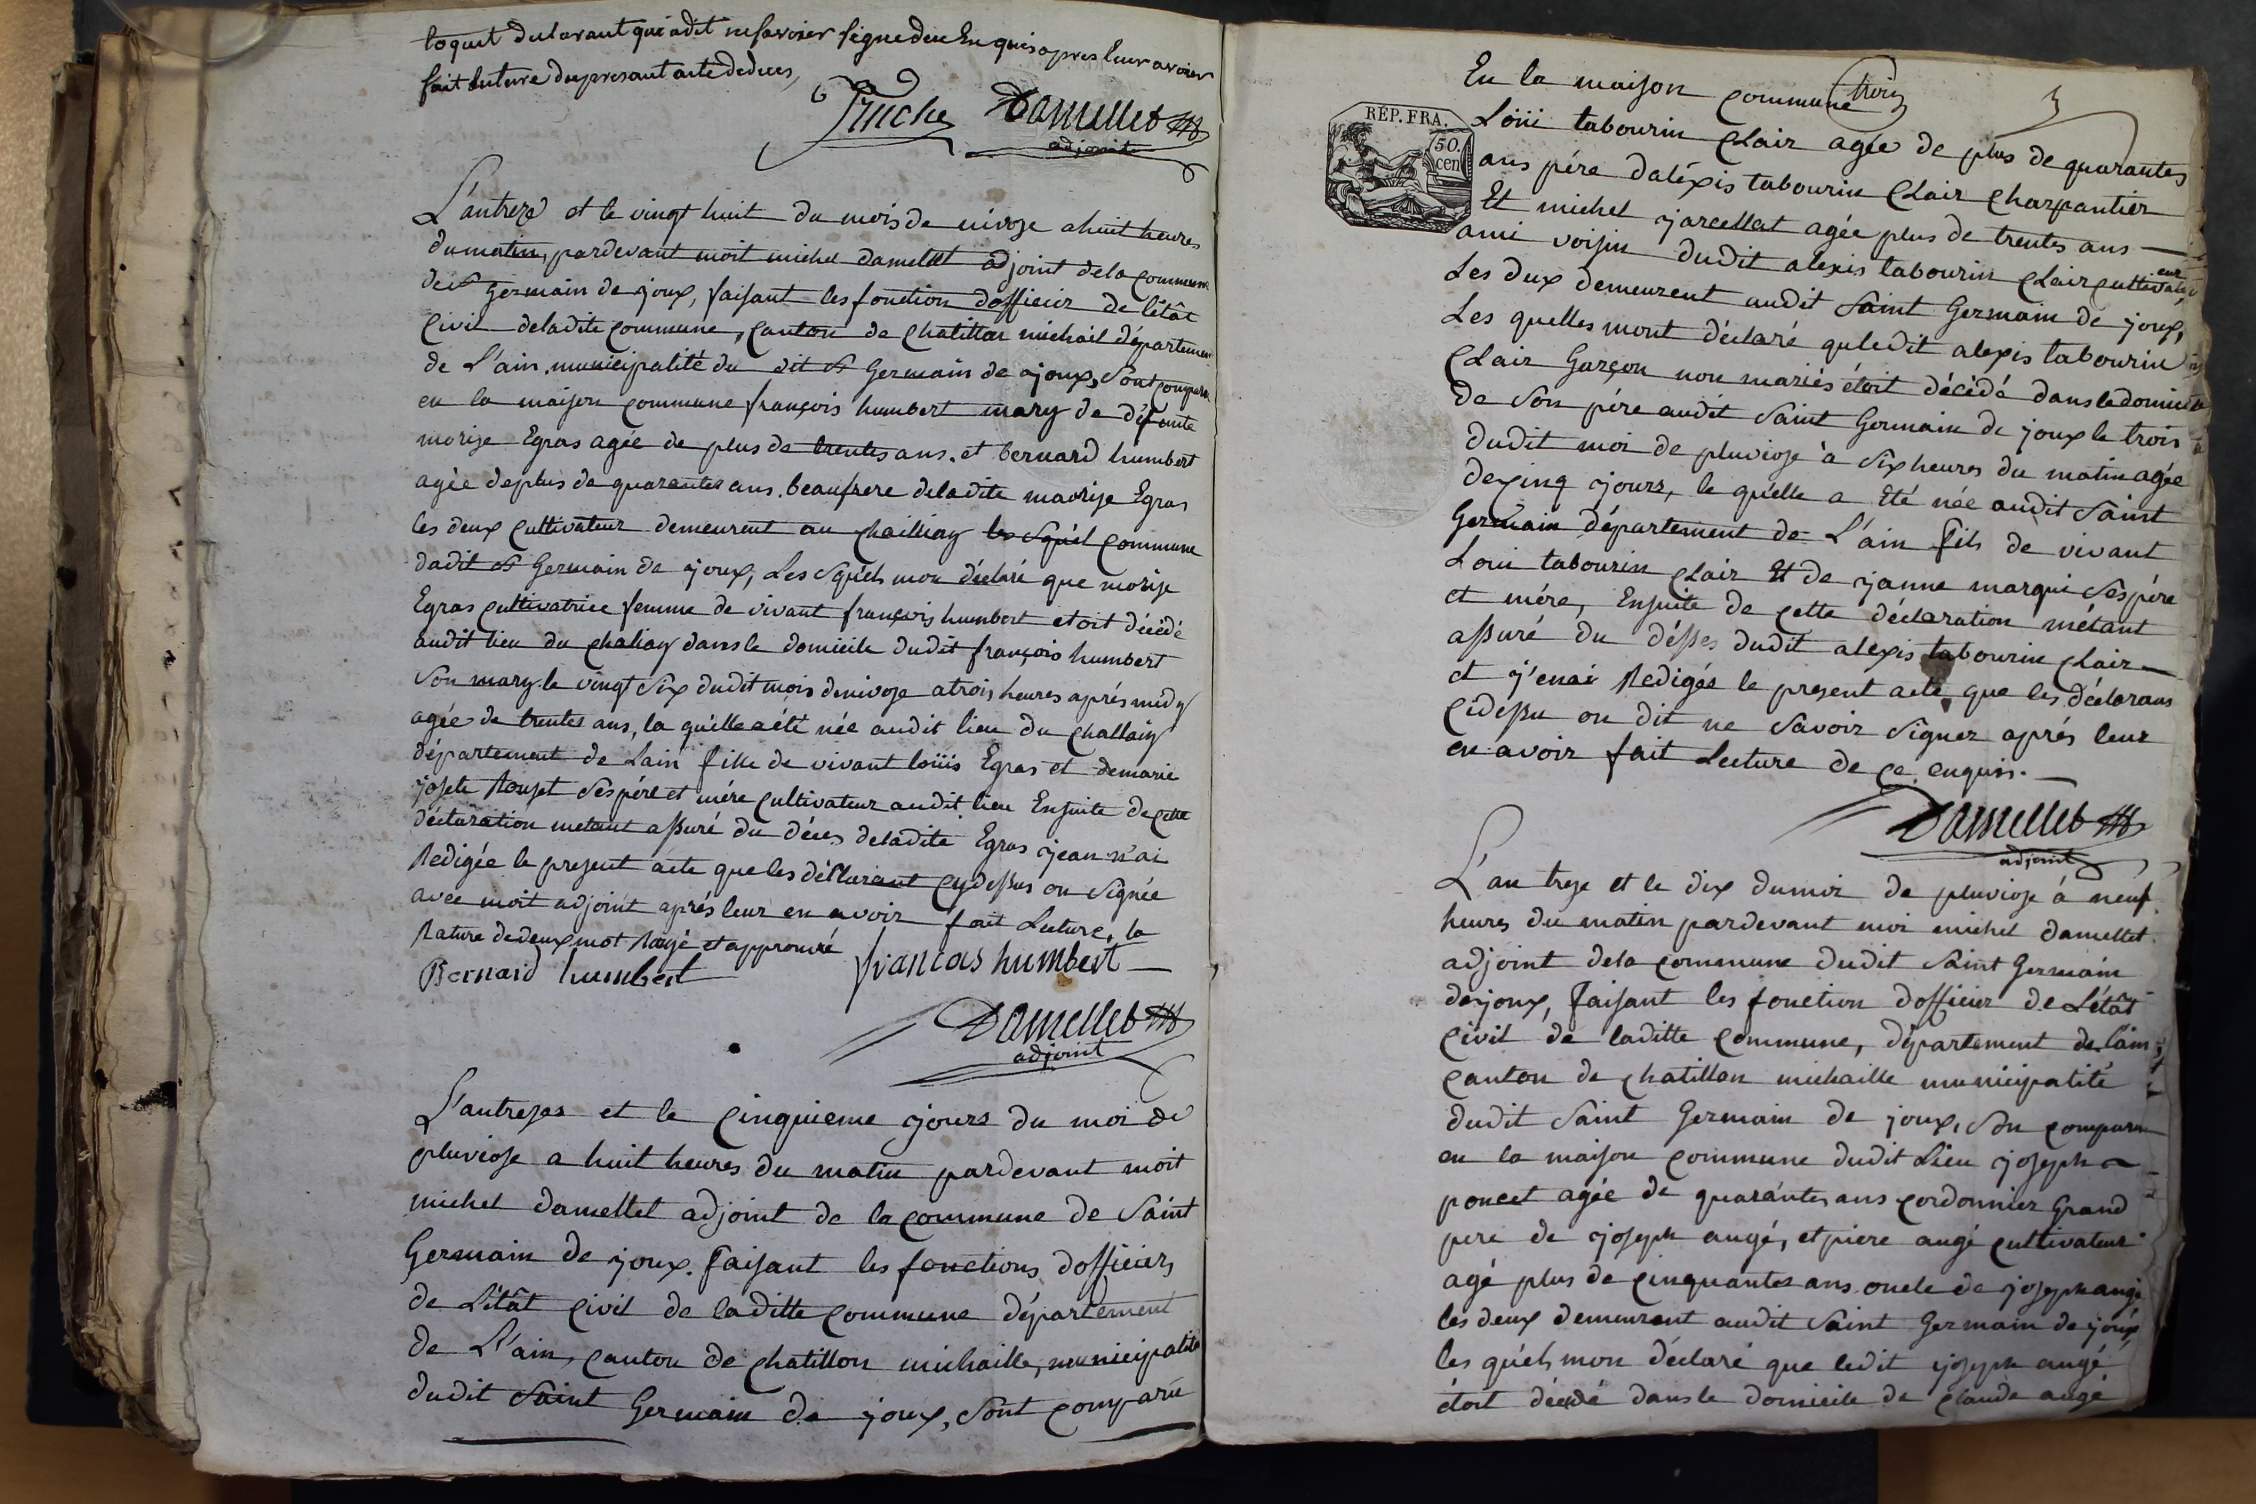 loquel declarant qui a dit ne savoier signe de ce Enquis apres leur avoier
fait lecture du presant acte de deces,
Truche Damellet
adjoint
L'antreze et le vingt huit du mois de nivoze a huit heures
du matin, pardevant moit michel damellet adjoint dela commune
de st Germain de joux, faisant les fonction dofficier de létât
Civil deladite commune, canton de chatillon michail départemen
de L'ain, municipalité du dit st Germain de joux, sont compars
en la maison commune françois humbert mary de défunte
morise Egras agée de plus de trentes ans. et bernard humbert
agèe deplus de quarantes ans. beaufrere deladite maorise Egras
les deux cultivateur demeurent au chailliay les squél commune
dudit st Germain de joux, Les squéls mon déclaré que morise
Egras cultivatrice femme de vivant françois humbert etoit décédé
audit lieu du chaliay dans le domicile dudit françois humbert
Son mary le vingt six dudit mois denivoze atrois heures après midy
agée de trentes ans, la quélle a été née audit lieu du challaiy
département de Lain fille de vivant loüis Egras et demarie
josete Rouset Ses pére et mére cultivateur audit lieu Ensuite de cette
déclaration metant assuré du déces deladite Egras jean n'ai
Redigée le present acte que les déclarant cydessus on signée
avec moit adjoint aprés leur en avoir fait Lecture, la
Rature de deux mot Rayé et approuvé
Bernard humbert francois humbert
Damellet
adjoint
L'antrezes et le cinquieme jours du moi de
pluviose a huit heures du matin pardevant moit
michel damellet adjoint de la commune de Saint
Germain de joux. faisant les fonctions dofficiers
de L'étât civil de laditte commune département
de L'ain, canton de chatillon michaille, municipalité
dudit Saint Germain de joux, sont comparu
En la maison commune trois 3
RÉP. FRA.
50.
cen
Loüi tabourin Clair agée de plus de quarantes
ans pére daléxis tabourin Clair charpantier
Et michel jarcellat agée plus de trentes ans —
ami voisin dudit alexis tabourin clair cultivateur
Les dux demeurent audit Saint Germain de joux,
Les quelles mont déclaré quledit alexis tabourin
Clair Garçon non mariés étoit décèdé dans le domicile
de Son pére audit Saint Germain de joux le trois
dudit moi de pluviose à Six heures du matin agée
de cinq jours, le quélle a Eté née audit Saint
Germain département de L'ain fils de vivant
Loui tabourin clair Et de janne marqui Ses pére
et mére, Ensuite de cette déclaration métant
assuré du désses dudit alexis tabourin clair —
et j'enai Redigés le present acte que les déclarans
cidessu on dit ne Savoir Signer aprés leur
en avoir fait Lecture de ce enquis. —
Damellet
adjoint
L'an treze et le dix dumoi de pluviose à neuf
heures du matin pardevant moi michel damellet
adjoint dela commune dudit Saint Germain
dejoux, faisant les fonction dofficier de L'étât
civil de laditte commune, département de Lain
canton de chatillon michaille municipalité
dudit Saint Germain de joux, Son comparu
en la maison commune dudit Lieu joseph
poncet agée de quarantes ans cordonnier Grand
pere de joseph augé, et piere augé cultivateur
agé plus de cinquantes ans oncle de joseph augé
les deux demeurant audit Saint Germain de joux
les quéls mon déclaré que ledit joseph augé
étoit décédé dans le domicile de claude augé